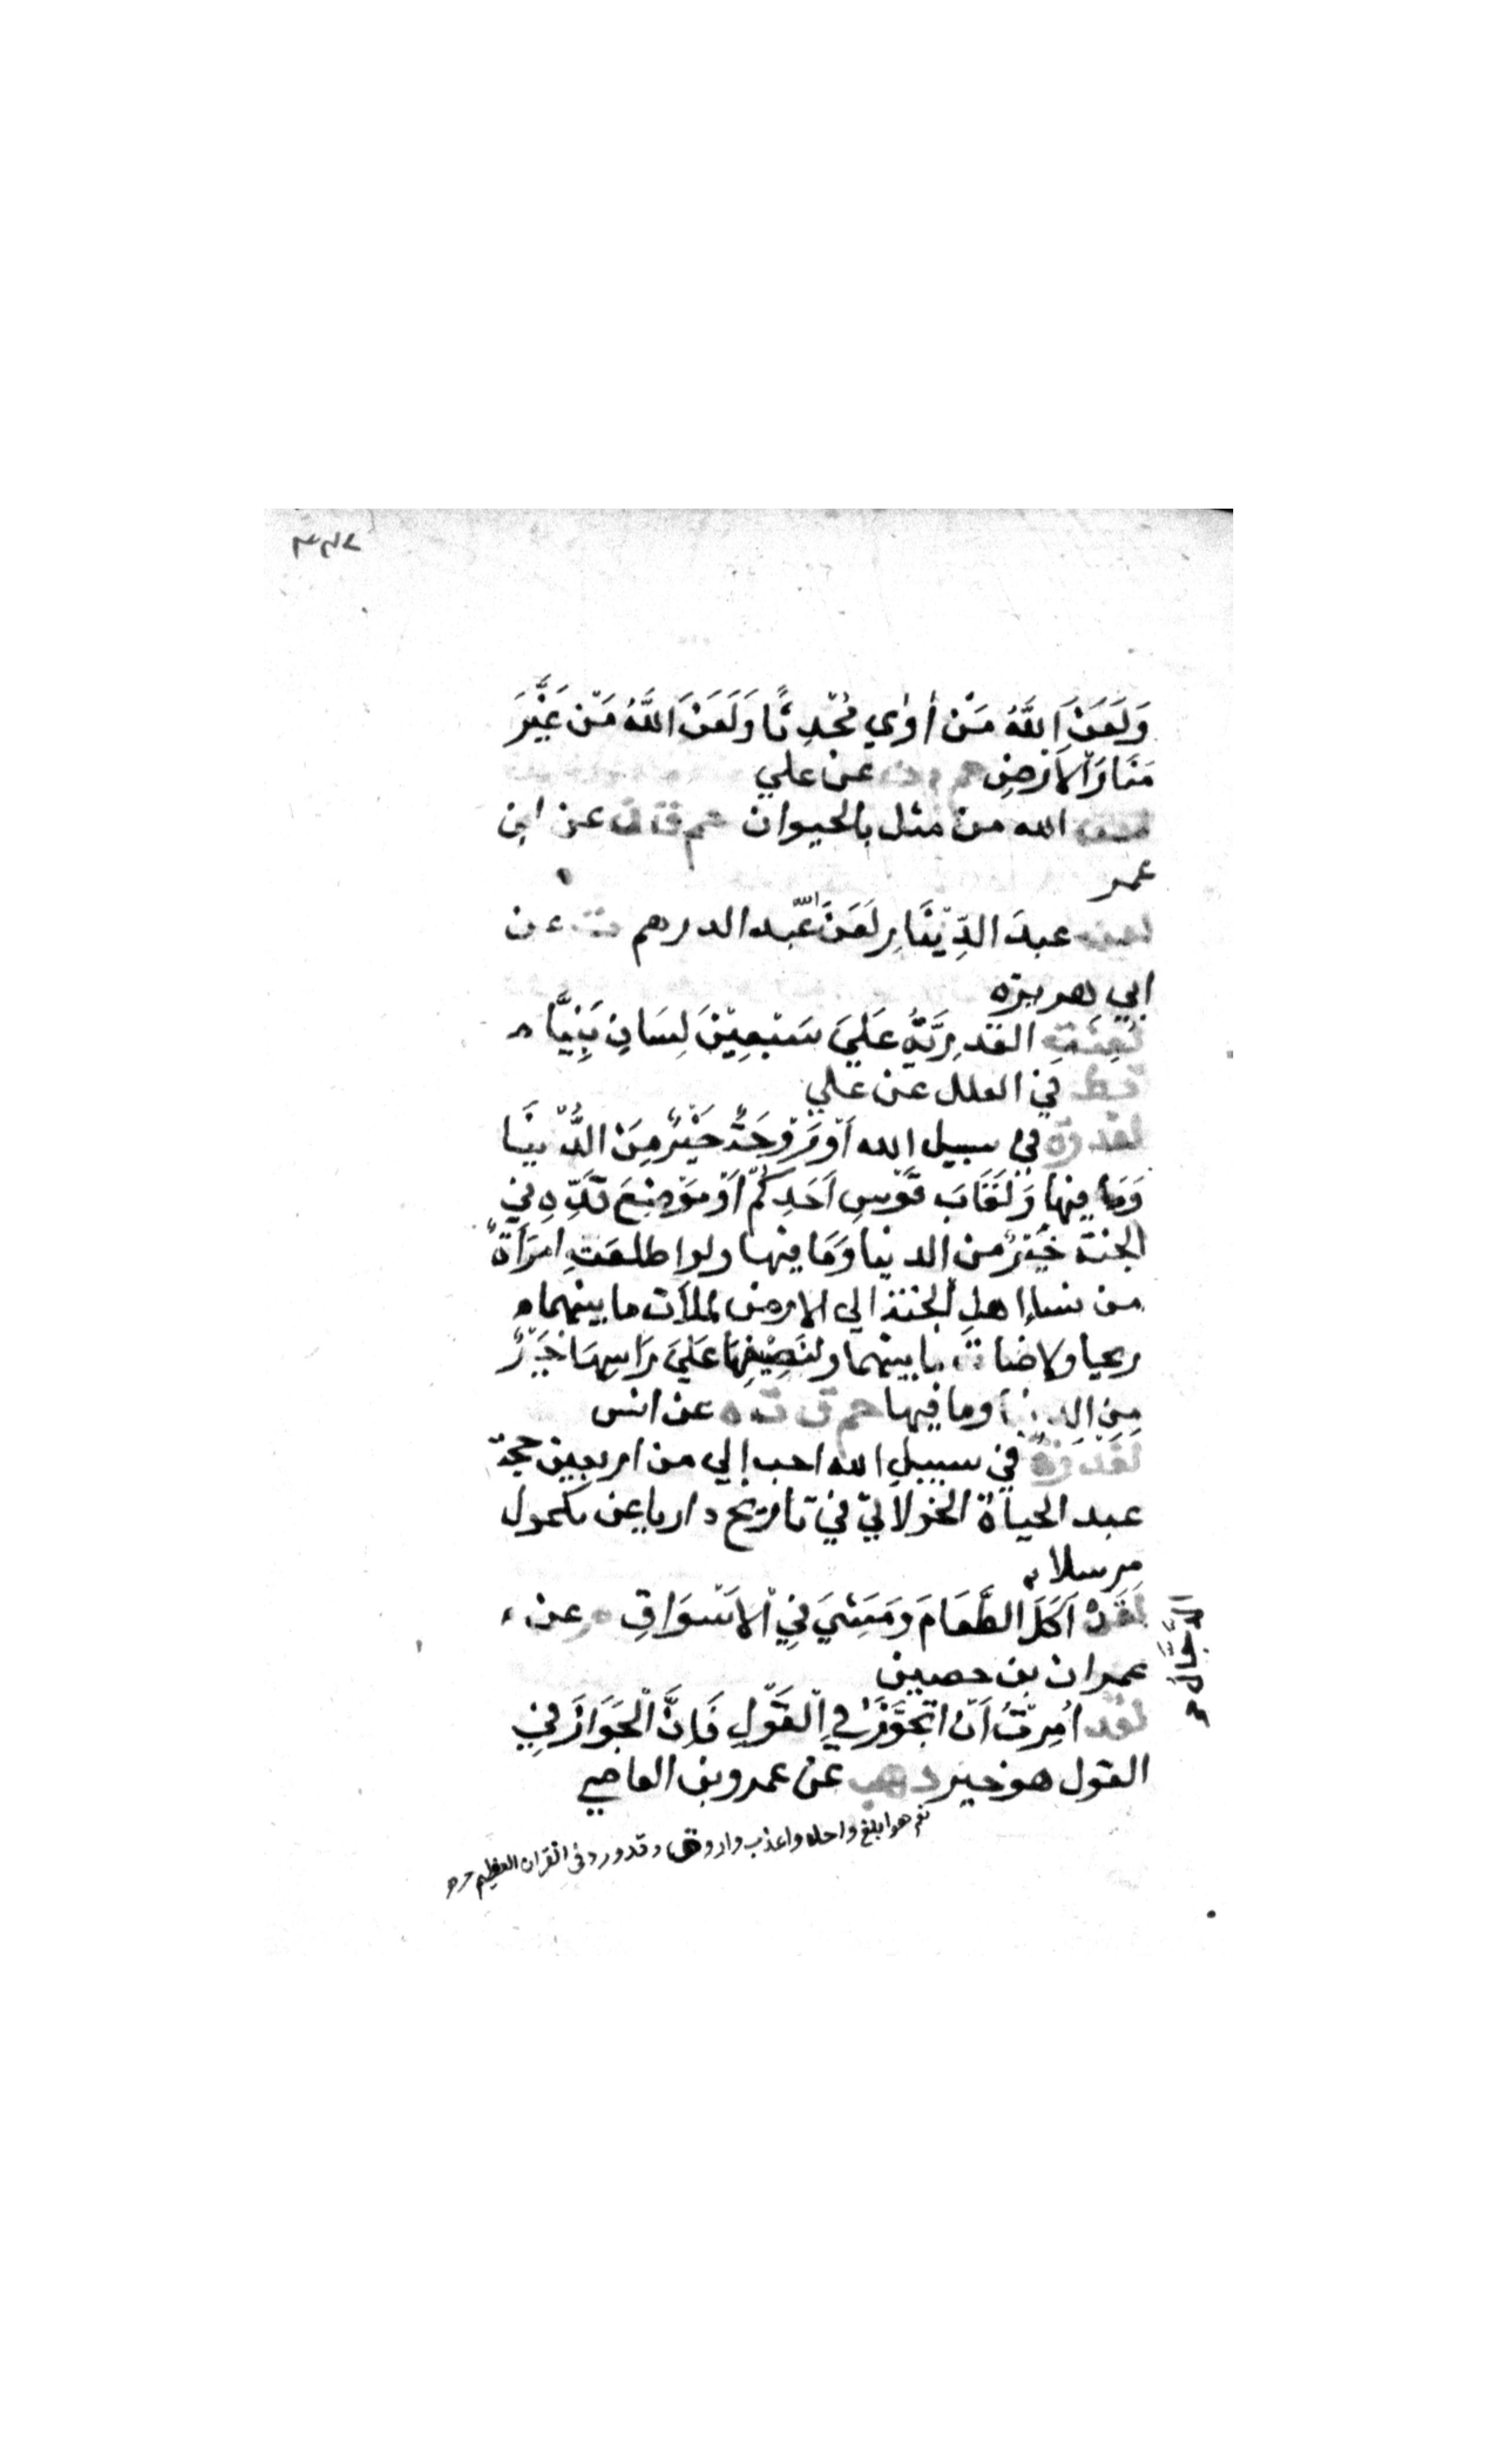 وَلَعَنَ اللَّهُ مَنْ اٰوٰي مُحْدِثًا وَلَعَنَ اللَّهُ مَنْ غَيَّرَ
مَنَارَ الْاَرْضِ حم م ن عن علي
لعن الله من مثل بالحيوان حم ق ن عن ابن
عمر
لعن عبدَ الدِّيْنَارِ لَعَنَ عبد الدرهم ت عن
ابي هريرة
لُعِنَتِ القَدَرِيَّةُ عَلَيَ سَبْعِيْنَ لِسَانِ نَبِيًّا
قط في العلل عن علي
لغدوة في سبيل الله اَوْ رَوْحَةٌ خَيْرٌ مِنَ الدُّنْيَا
وَمَا فيها وَلَقَابَ قَوْسِ اَحَدِكُمْ اَوْ مَوْضِعَ قَدِّهِ في
الجنة خَيْرٌ من الدنيا وَمَا فيها ولو اطلعَتِ امْرَاَةٌ
من نساء اهلِ الجنة الي الارض لملأت ما بينهما
ريحا ولاضاءت ما بينهما ولنَصِيْفُهَا عَلَيَ رَاسِهَا خَيْرٌ
مِنَ الدنيا وما فيها حم ق ت ه عن انس
لَغَدْوَةٌ في سبيلِ الله احب الي من اربعين حجة
عبد الحياة الخولاني في تاريخ داريا عن مكحول
مرسلا
لَقَدْ اَكَلَ الطَّعَامَ وَمَشَيَ فِي الْاَسْوَاقِ عن
الدَّجَّالُ
عمران بن حصين
لقد اُمِرْتُ اَنْ اَتَجَوَّزَ فِي الْقَوْلِ فَاِنَّ الْجَوَازَ فِي
القول هو خير د هب عن عمرو بن العاصي
نعم هو ابلغ واحلا واعذب وقد ورد في القران العظيم